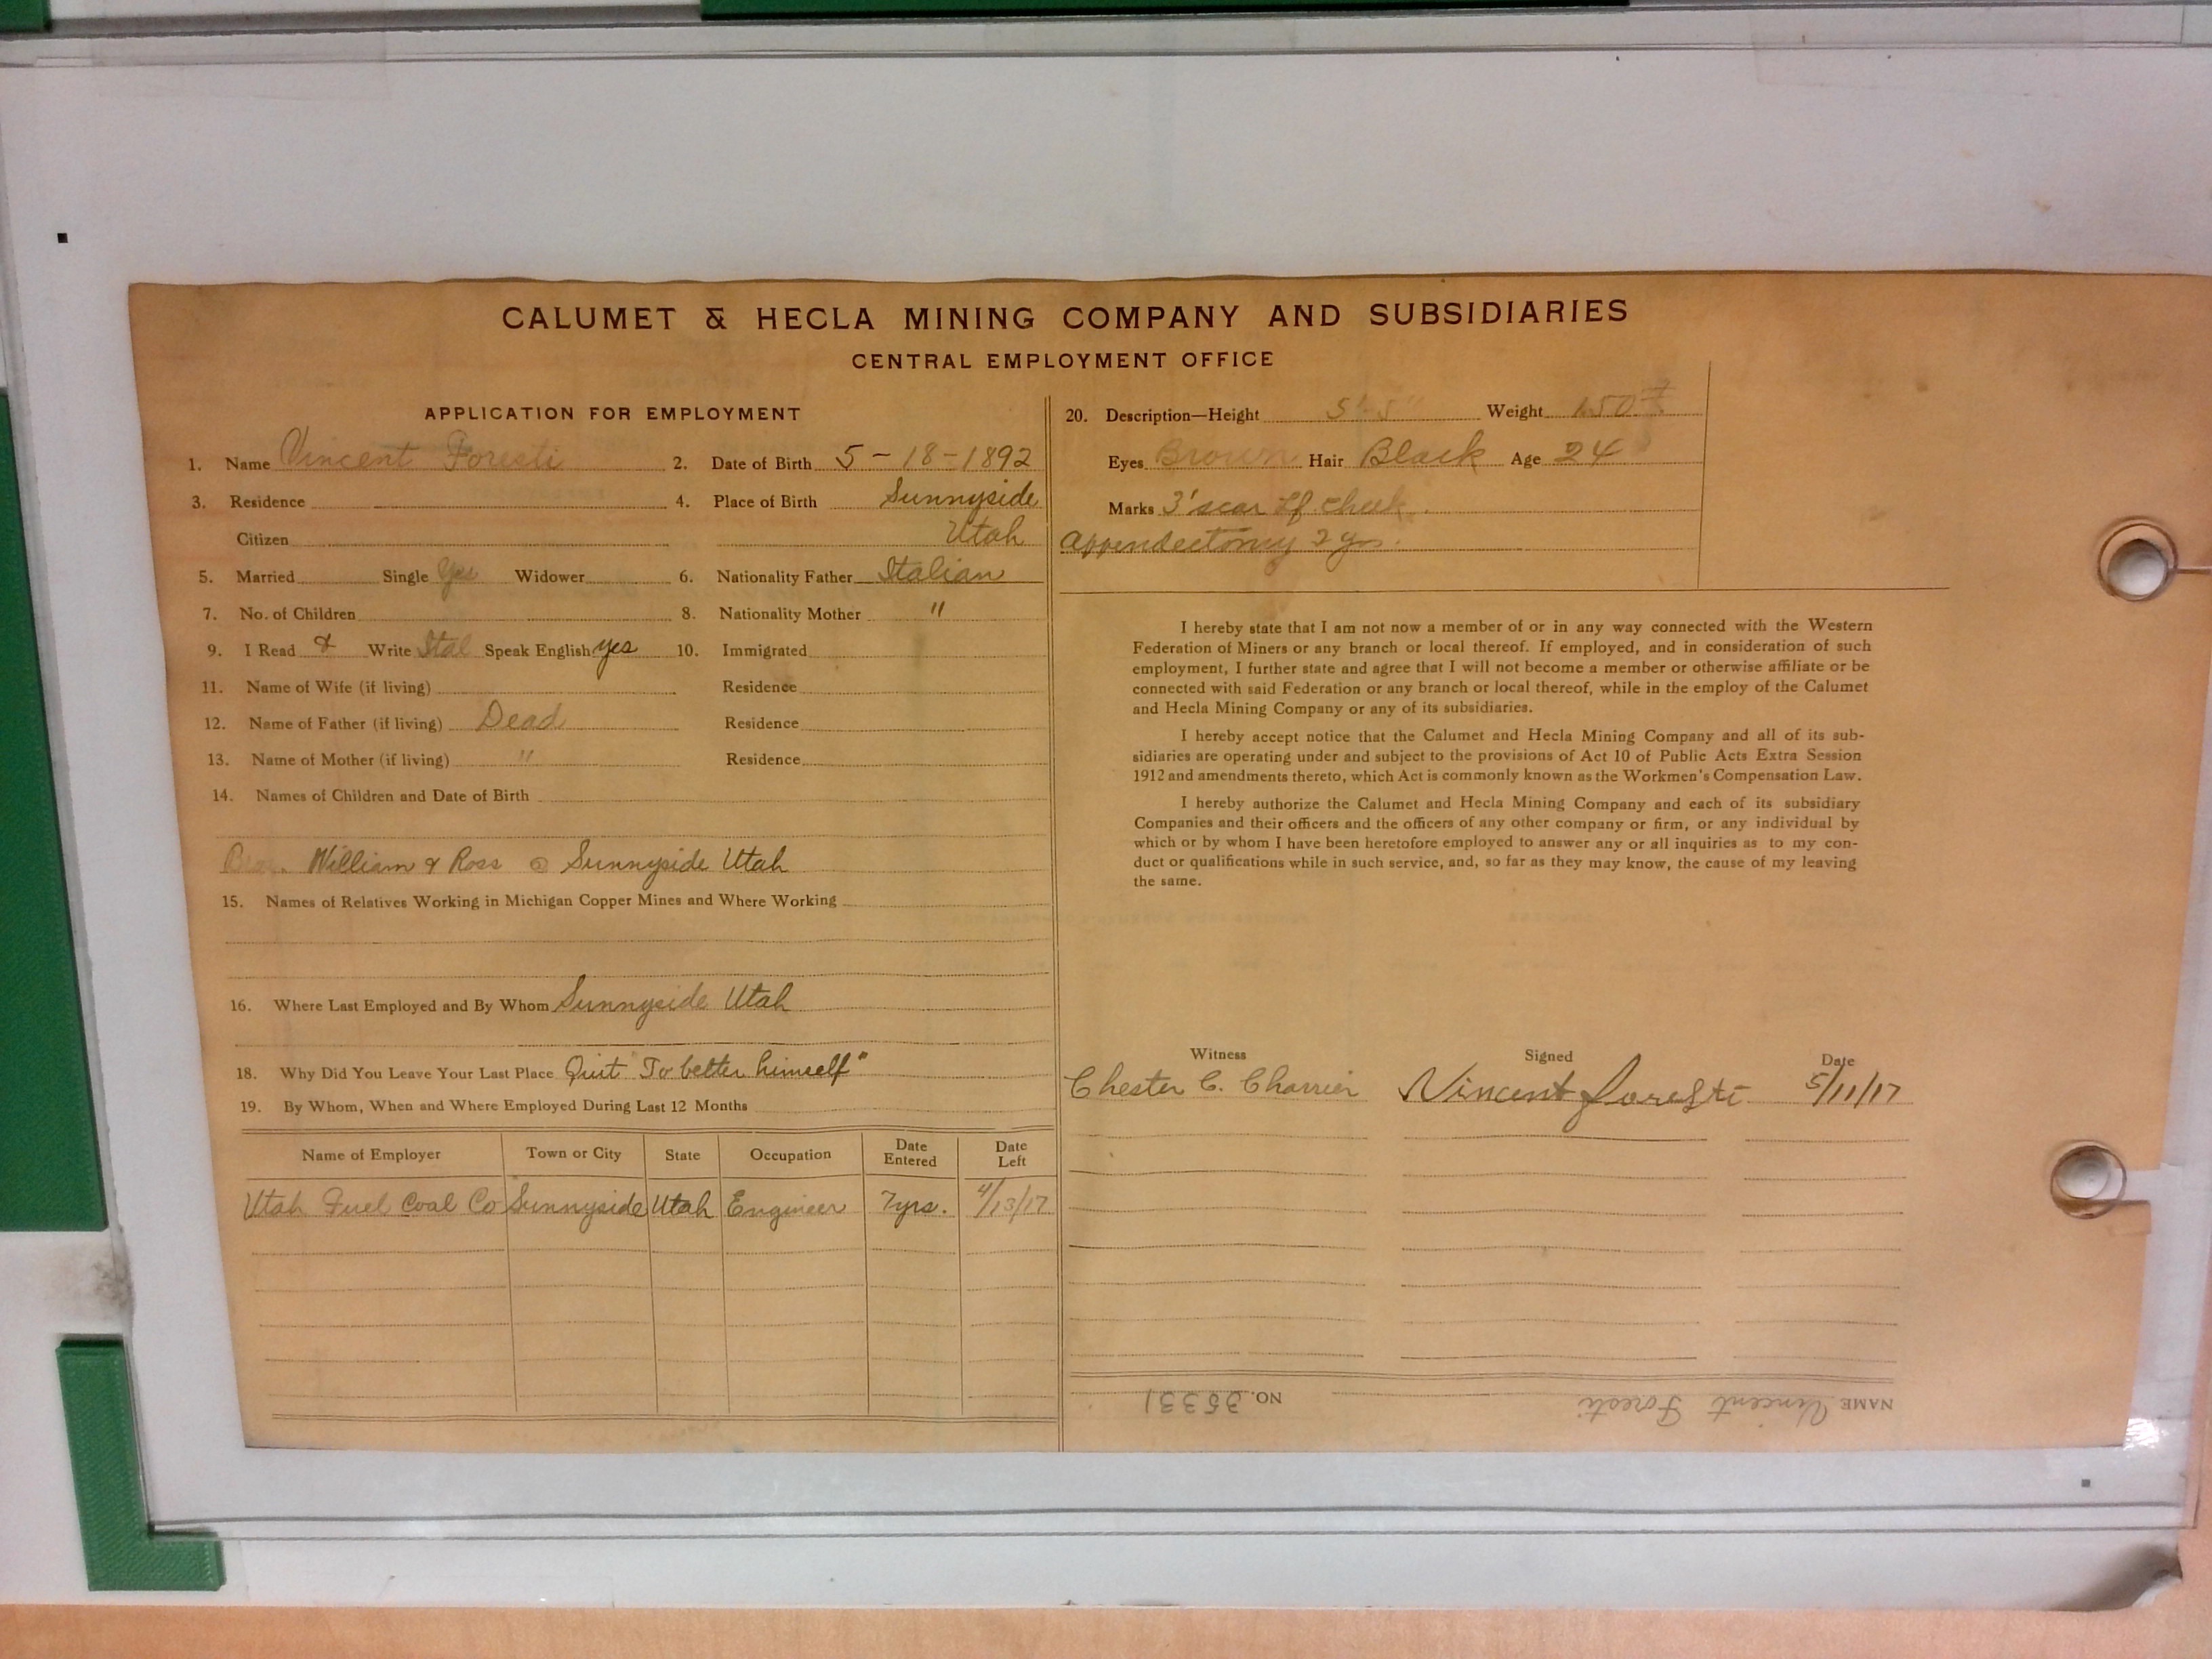 CALUMET & HECLA MINING COMPANY AND SUBSIDIARIES
CENTRAL EMPLOYMENT OFFICE
APPLICATION FOR EMPLOYMENT
1. Name Vincent Foresti 2. Date of Birth 5-18-1892
3. Residence 4. Place of Birth Sunnyside
Citizen Utah
5. Married Single Yes Widower 6. Nationality Father Italian
7. No. of Children 8. Nationality Mother "
9. I Read & Write Ital Speak English yes 10. Immigrated
11. Name of Wife (if living) Residence
12. Name of Father (if living) Dead Residence
13. Name of Mother (if living) " Residence
14. Names of Children and Date of Birth
William & Ross @ Sunnyside Utah
15. Names of Relatives Working in Michigan Copper Mines and Where Working
16. Where Last Employed and By Whom Sunnyside Utah
18. Why Did You Leave Your Last Place Quit "To better himself"
19. By Whom, When and Where Employed During Last 12 Months
Name of Employer Town or City State Occupation Date Entered Date Left
Utah Fuel Coal Co Sunnyside Utah Engineer 7yrs. 4/13/17
20. Description—Height 5'-5" Weight 150#
Eyes Brown Hair Black Age 24
Marks 3' scar Lf. cheek.
Appendectomy 2 yrs.
I hereby state that I am not now a member of or in any way connected with the Western
Federation of Miners or any branch or local thereof. If employed, and in consideration of such
employment, I further state and agree that I will not become a member or otherwise affiliate or be
connected with said Federation or any branch or local thereof, while in the employ of the Calumet
and Hecla Mining Company or any of its subsidiaries.
I hereby accept notice that the Calumet and Hecla Mining Company and all of its sub-
sidiaries are operating under and subject to the provisions of Act 10 of Public Acts Extra Session
1912 and amendments thereto, which Act is commonly known as the Workmen's Compensation Law.
I hereby authorize the Calumet and Hecla Mining Company and each of its subsidiary
Companies and their officers and the officers of any other company or firm, or any individual by
which or by whom I have been heretofore employed to answer any or all inquiries as to my con-
duct or qualifications while in such service, and, so far as they may know, the cause of my leaving
the same.
Witness Signed Date
Chester C. Charrier Vincent Foresti 5/11/17
NAME Vincent Foresti NO. 35331